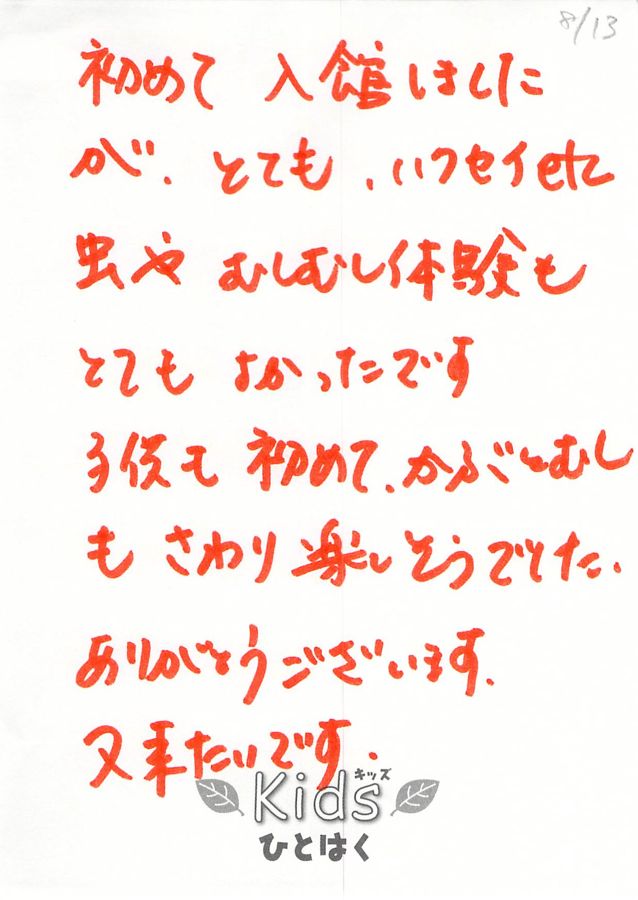 8/13
初めて 入館しました
が、とても、いフセイetc
虫や むしむし体験も
とても よかったです
子供も 初めて、かぶとむし
も さわり 楽しそうでした.
ありがとうございます.
又来たいです.
キッズ
Kids
ひとはく